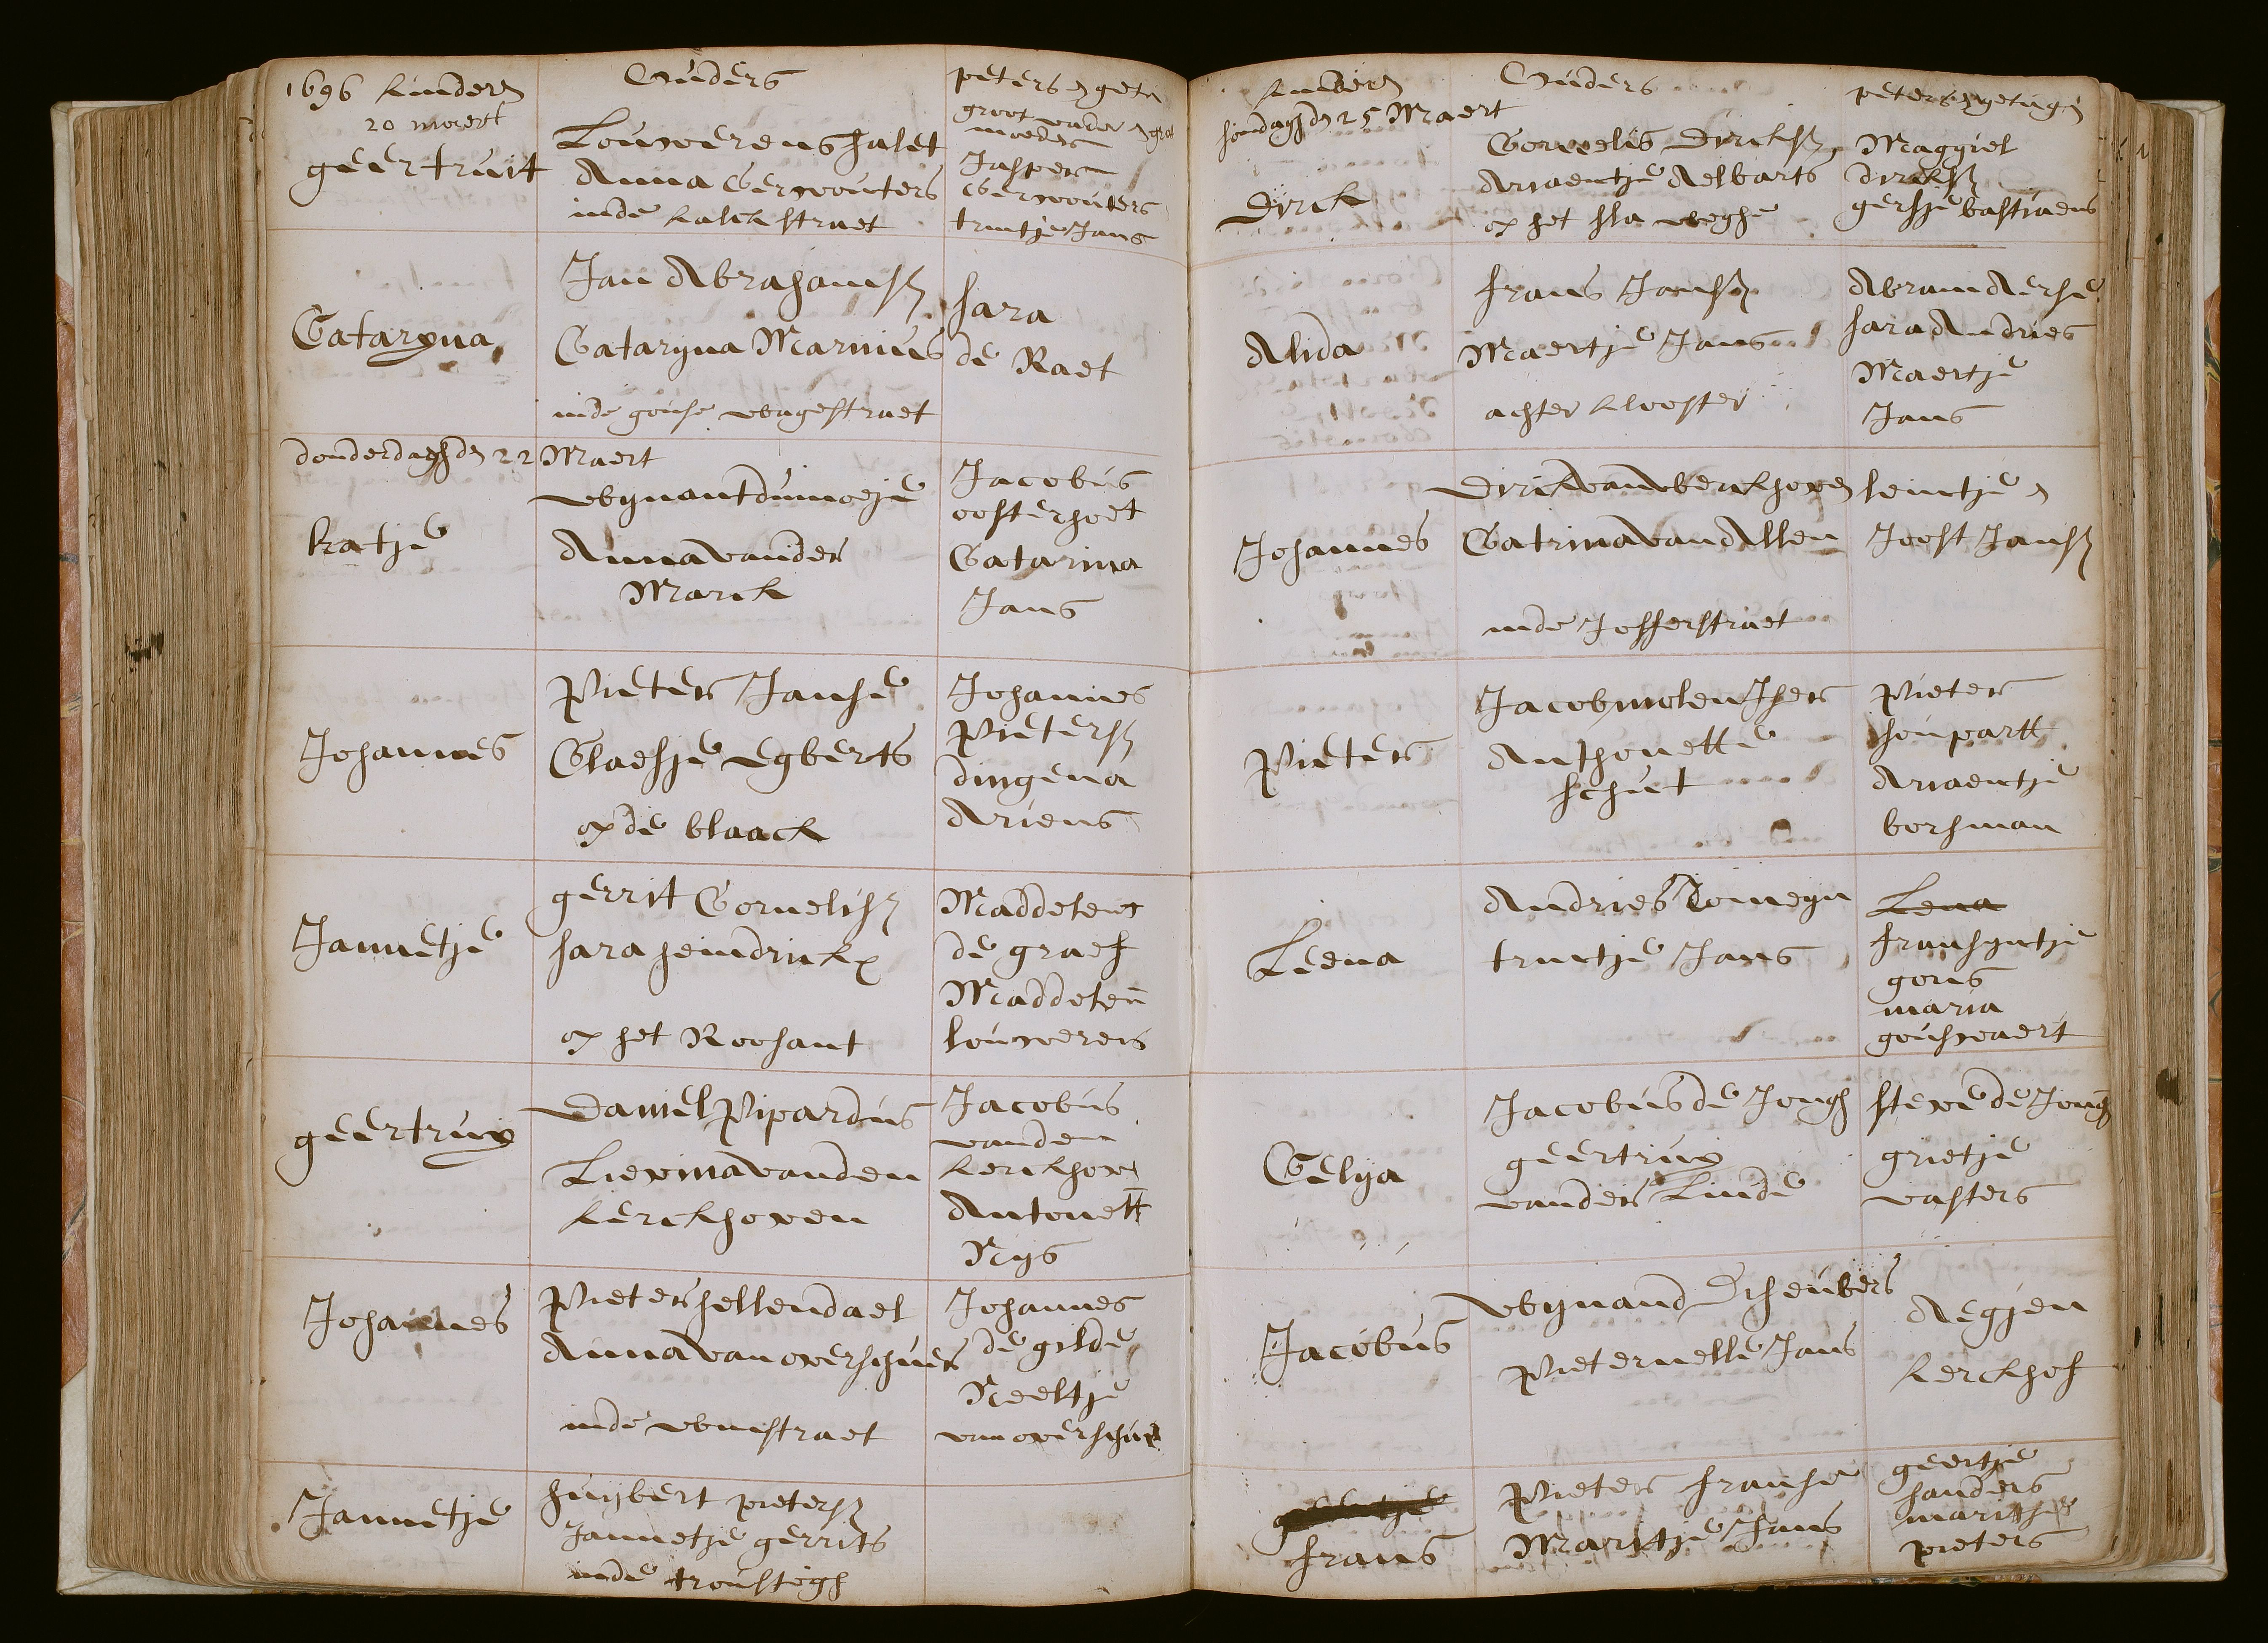 1696 kinderen
20 maert
Ouders
peters en getu
groot vader en groot
moeder
geertruit
Louwerens halet
Anna Gerwouters
inde kalckstraet
Jasper
Gerwouters
trintje Jans
Cataryna
Jan Abrahamsz
Cataryna Marnius
inde gouse wagestraet
sara
de Raet
donderdaghs den 22 Maert
katje
wynant dumoeje
Anna vander
Marck
Jacobus
oosterhoet
Catarina
Jans
Johannes
Pieter Janse
Claesje Egberts
op de blaack
Johannes
Pietersz
dingena
Ariens
Jannetje
gerrit Cornelisz
sara heindrickx
op het Roosant
Maddeleens
de graef
Maddeleen
louwereis
geertruy
Daniel Pipardus
Lievina vanden
kerckhoven
Jacobus
vanden
kerckhove
Antonett
Nys
Johannes
Pieter hellendael
Anna van overschuer
inde wynstraet
Johannes
de gilde
Neeltje
van overschue
Jannetje
huijbert pietersz
Jannetje gerrits
inde trousteegh
kinderen
sondaghs den 25 Maert
Ouders
peters en getugen
Dirck
Cornelis Dircksz
Ariaentje Aelbarts
op het sla weghe
Maggiel
dircksz
gersje bastiaens
Alida
frans Jansz
Maertje Jans
achter klooster
Abram Aerse
sara Andries
Maertje
Jans
Johannes
Dirck van Berckhoven
Catrina van Allen
inde Jofferstraet
leintje en
Joost Jansz
Pieter
Jacob molen Iser
Anthonette
schut
Pieter
soupartt
Ariaentje
borsman
Leena
Andries Romeyn
trintje Jans
Lena
fransyntje
goris
maria
gouswaert
Celya
Jacobus de Jongh
geertruy
vander Linde
steve de Jongh
grietje
vasters
Jacobus
wynand Scheubers
Pieternelle Jans
Aegjen
kerckhof
frans
Pieter franse
Marytje Jans
geertje
sanders
maritje
pieters